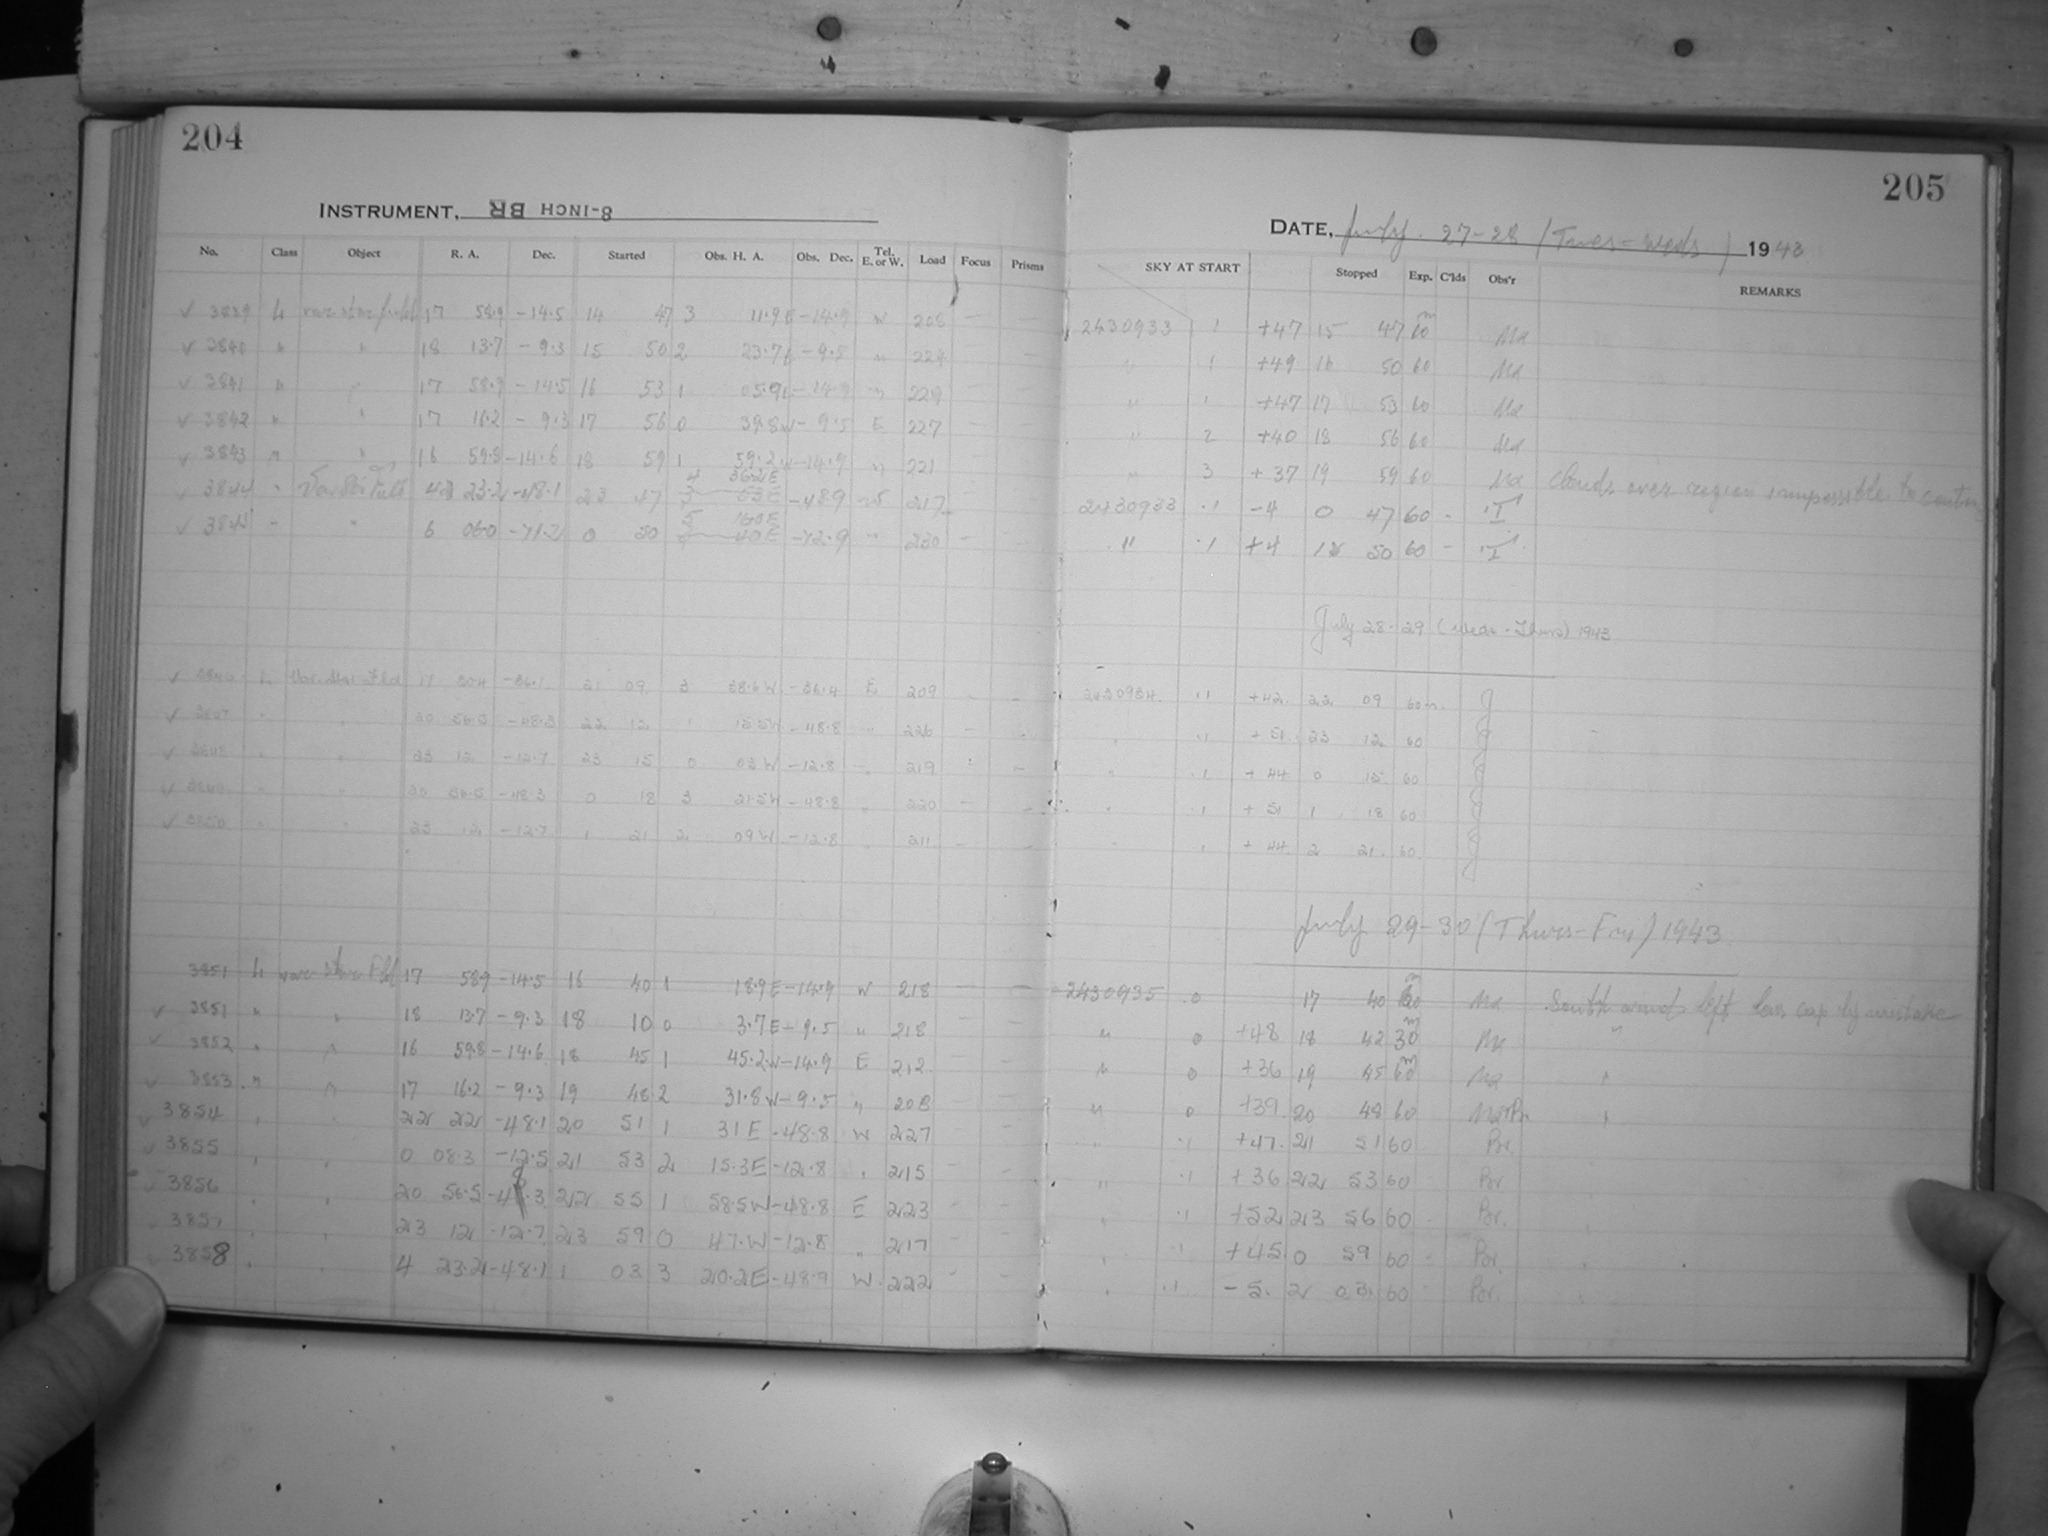 204
205
INSTRUMENT, BR 8-INCH
DATE, July 27-28 (Tues-Weds) 1943
No. Class Object R. A. Dec. Started Obs. H. A. Obs. Dec. Tel. E. or W. Load Focus Prisms SKY AT START Stopped Exp. C'lds Obs'r REMARKS
3839 L 17 58.9 -14.5 14 47 3 11.9E -14.9 W 208 - 2430933 1 +47 15 47 60m Ma
3840 " " 18 13.7 -9.3 15 50 2 23.7E -9.5 " 224 " 1 +49 16 50 60 Ma
3841 " " 17 58.9 -14.5 16 53 1 05.9E -14.9 " 229 " 1 +47 17 53 60 Ma
3842 " " 17 16.2 -9.3 17 56 0 39.8W -9.5 E 227 " 2 +40 18 56 60 Ma
3843 " " 16 59.8 -14.6 18 59 1 59.2W -14.9 " 221 " 3 +37 19 59 60 Ma Clouds over region impossible to
3844 " 4 23.2 -48.1 23 47 4 36.2E -48.9 217 2430933 .1 -4 0 47 60 - T
3845 - " 6 06.0 -71.2 0 50 5 16.0E -72.9 " 230 - " .1 +4 1 50 60 - T
July 28-29 (Weds-Thurs) 1943
3846 L Var. Star Fld 17 -36.1 21 09 3 38.6W -36.4 E 209 2430934 .1 +42 22 09 60m. J
3847 " " 20 56.5 -48.3 22 12 1 15.5W -48.8 " 226 " .1 +51 23 12 60 J
3848 " " 23 12 -12.7 23 15 0 03W -12.8 " 219 " .1 +44 0 15 60 J
3849 " " 20 56.5 -48.3 0 18 3 21.5W -48.8 " 220 " .1 +51 1 18 60 J
3850 " " 23 12 -12.7 1 21 2 09W -12.8 " 211 " .1 +44 2 21 60 J
July 29-30 (Thurs-Fri) 1943
3851 L 17 58.9 -14.5 16 40 1 18.9E -14.9 W 218 - - 2430935 .0 17 40 60m Ma South wind left lens cap by mistake
3851 " " 18 13.7 -9.3 18 10 0 3.7E -9.5 " 218 " 0 +48 18 42 30m Ma "
3852 " " 16 59.8 -14.6 18 45 1 45.2W -14.9 E 212 " 0 +36 19 45 60m Ma "
3853 " " 17 16.2 -9.3 19 48 2 31.8W -9.5 " 208 " 0 +39 20 48 60 "
3854 " " 22 22 -48.1 20 51 1 31E -48.8 W 227 " .1 +47 21 51 60 Br
3855 " " 0 08.3 -12.5 21 53 2 15.3E -12.8 " 215 " .1 +36 22 53 60 Br
3856 " " 20 56.5 -48.3 22 55 1 58.5W -48.8 E 223 " .1 +52 23 56 60 Br.
3857 " " 23 12 -12.7 23 59 0 47.W -12.8 " 217 " .1 +45 0 59 60 Br.
3858 " " 4 23.2 -48.1 1 03 3 20.2E -48.9 W 222 " .1 -5. 2 03 60 Br.